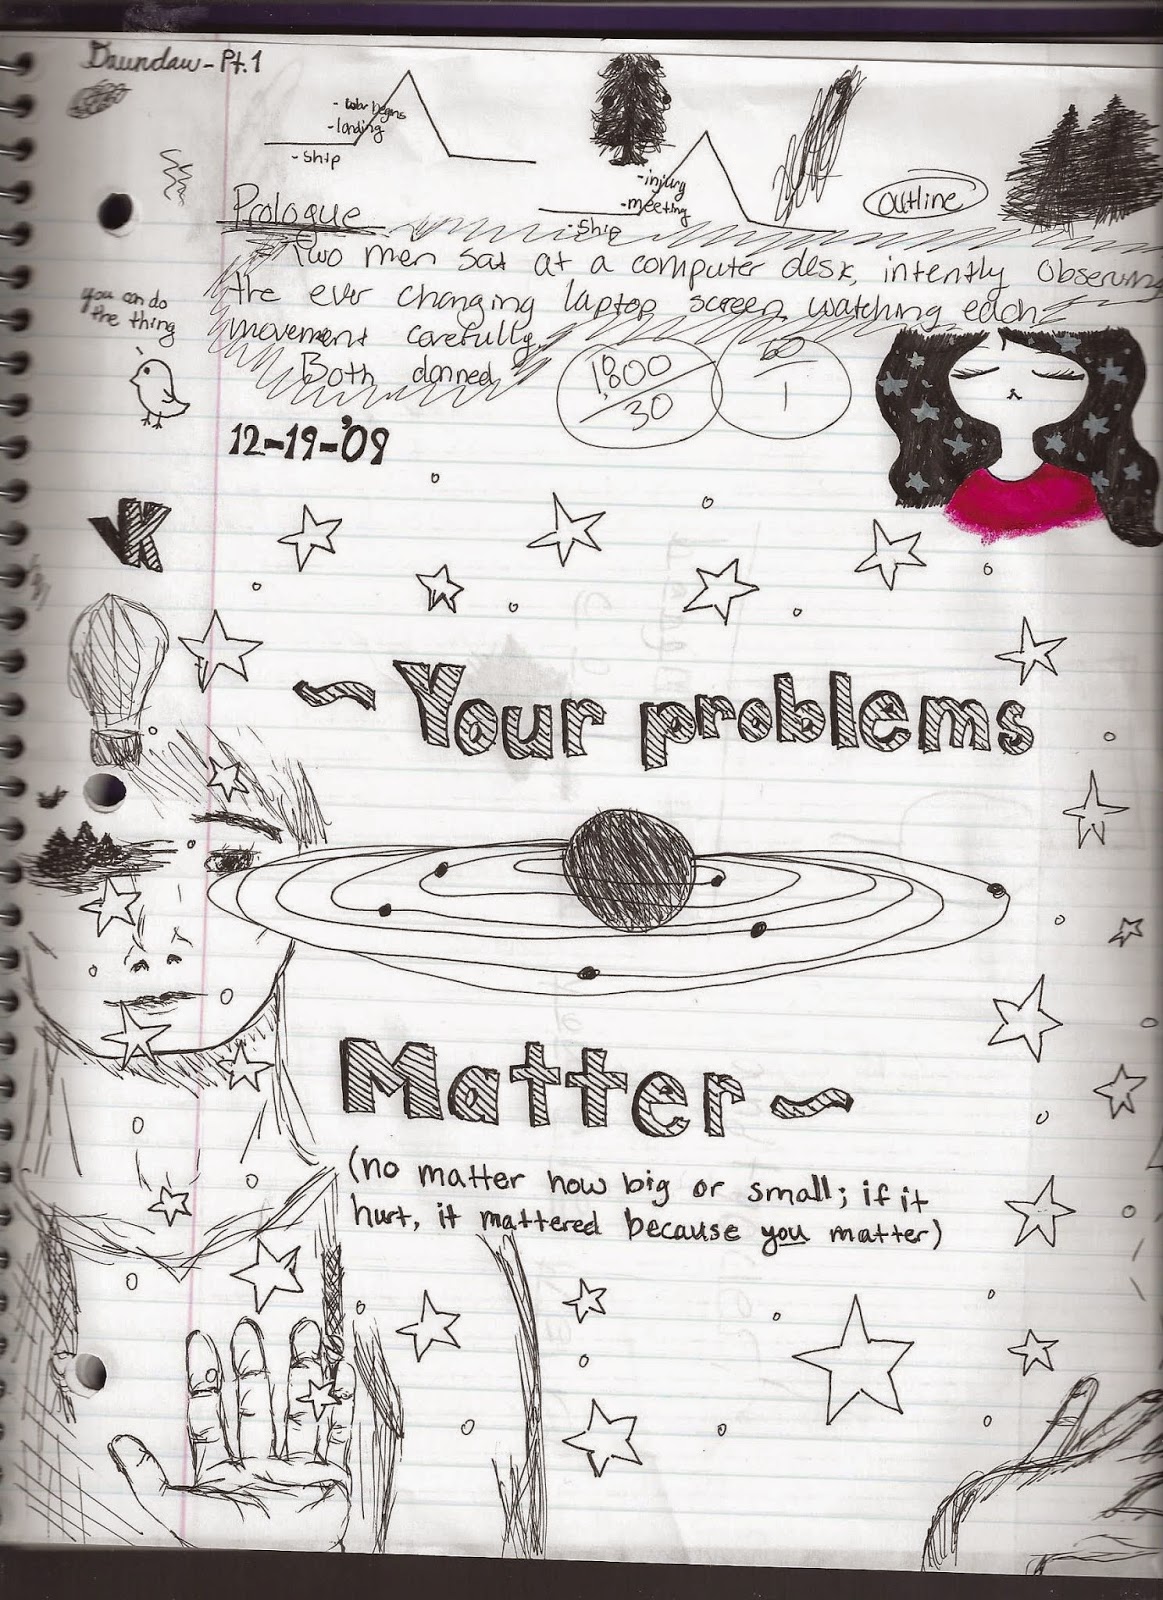 Daundaw - Pt. 1
- war begins
- landing
- ship
- injury
- meeting
- ship
outline
Prologue
Two men sat at a computer desk, intently observing
the ever changing laptop screen, watching each
movement carefully.
Both donned
you can do
the thing
1800
30
60
1
12-19-'09
K
~ Your problems
Matter ~
(no matter how big or small; if it
hurt, it mattered because you matter)